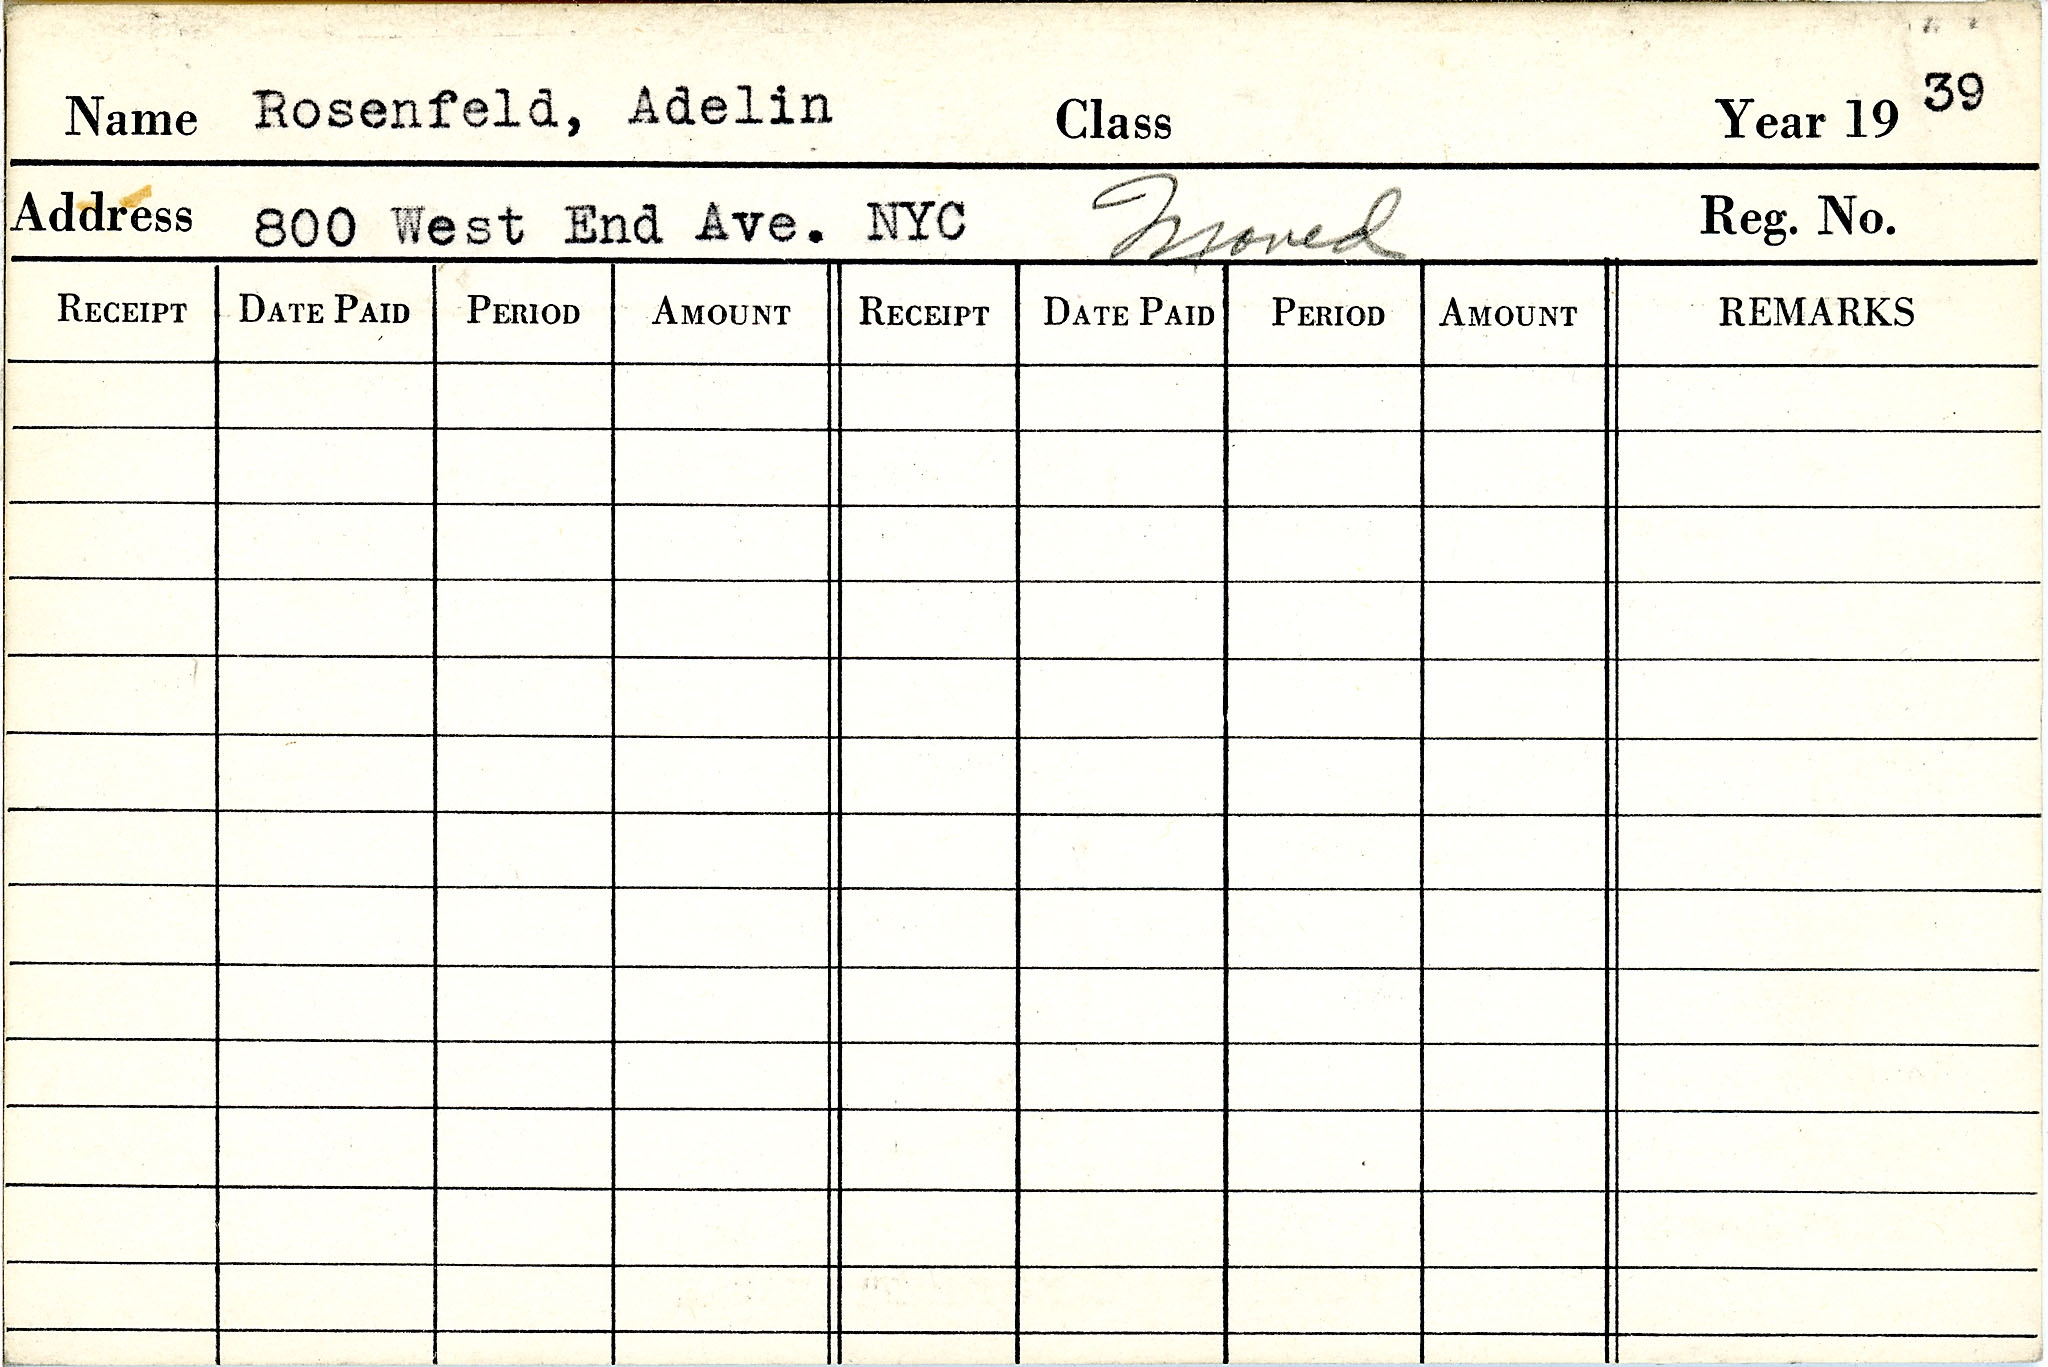 Name Rosenfeld, Adelin Class Year 19 39
Address 800 West End Ave. NYC Moved Reg. No.
RECEIPT DATE PAID PERIOD AMOUNT RECEIPT DATE PAID PERIOD AMOUNT REMARKS